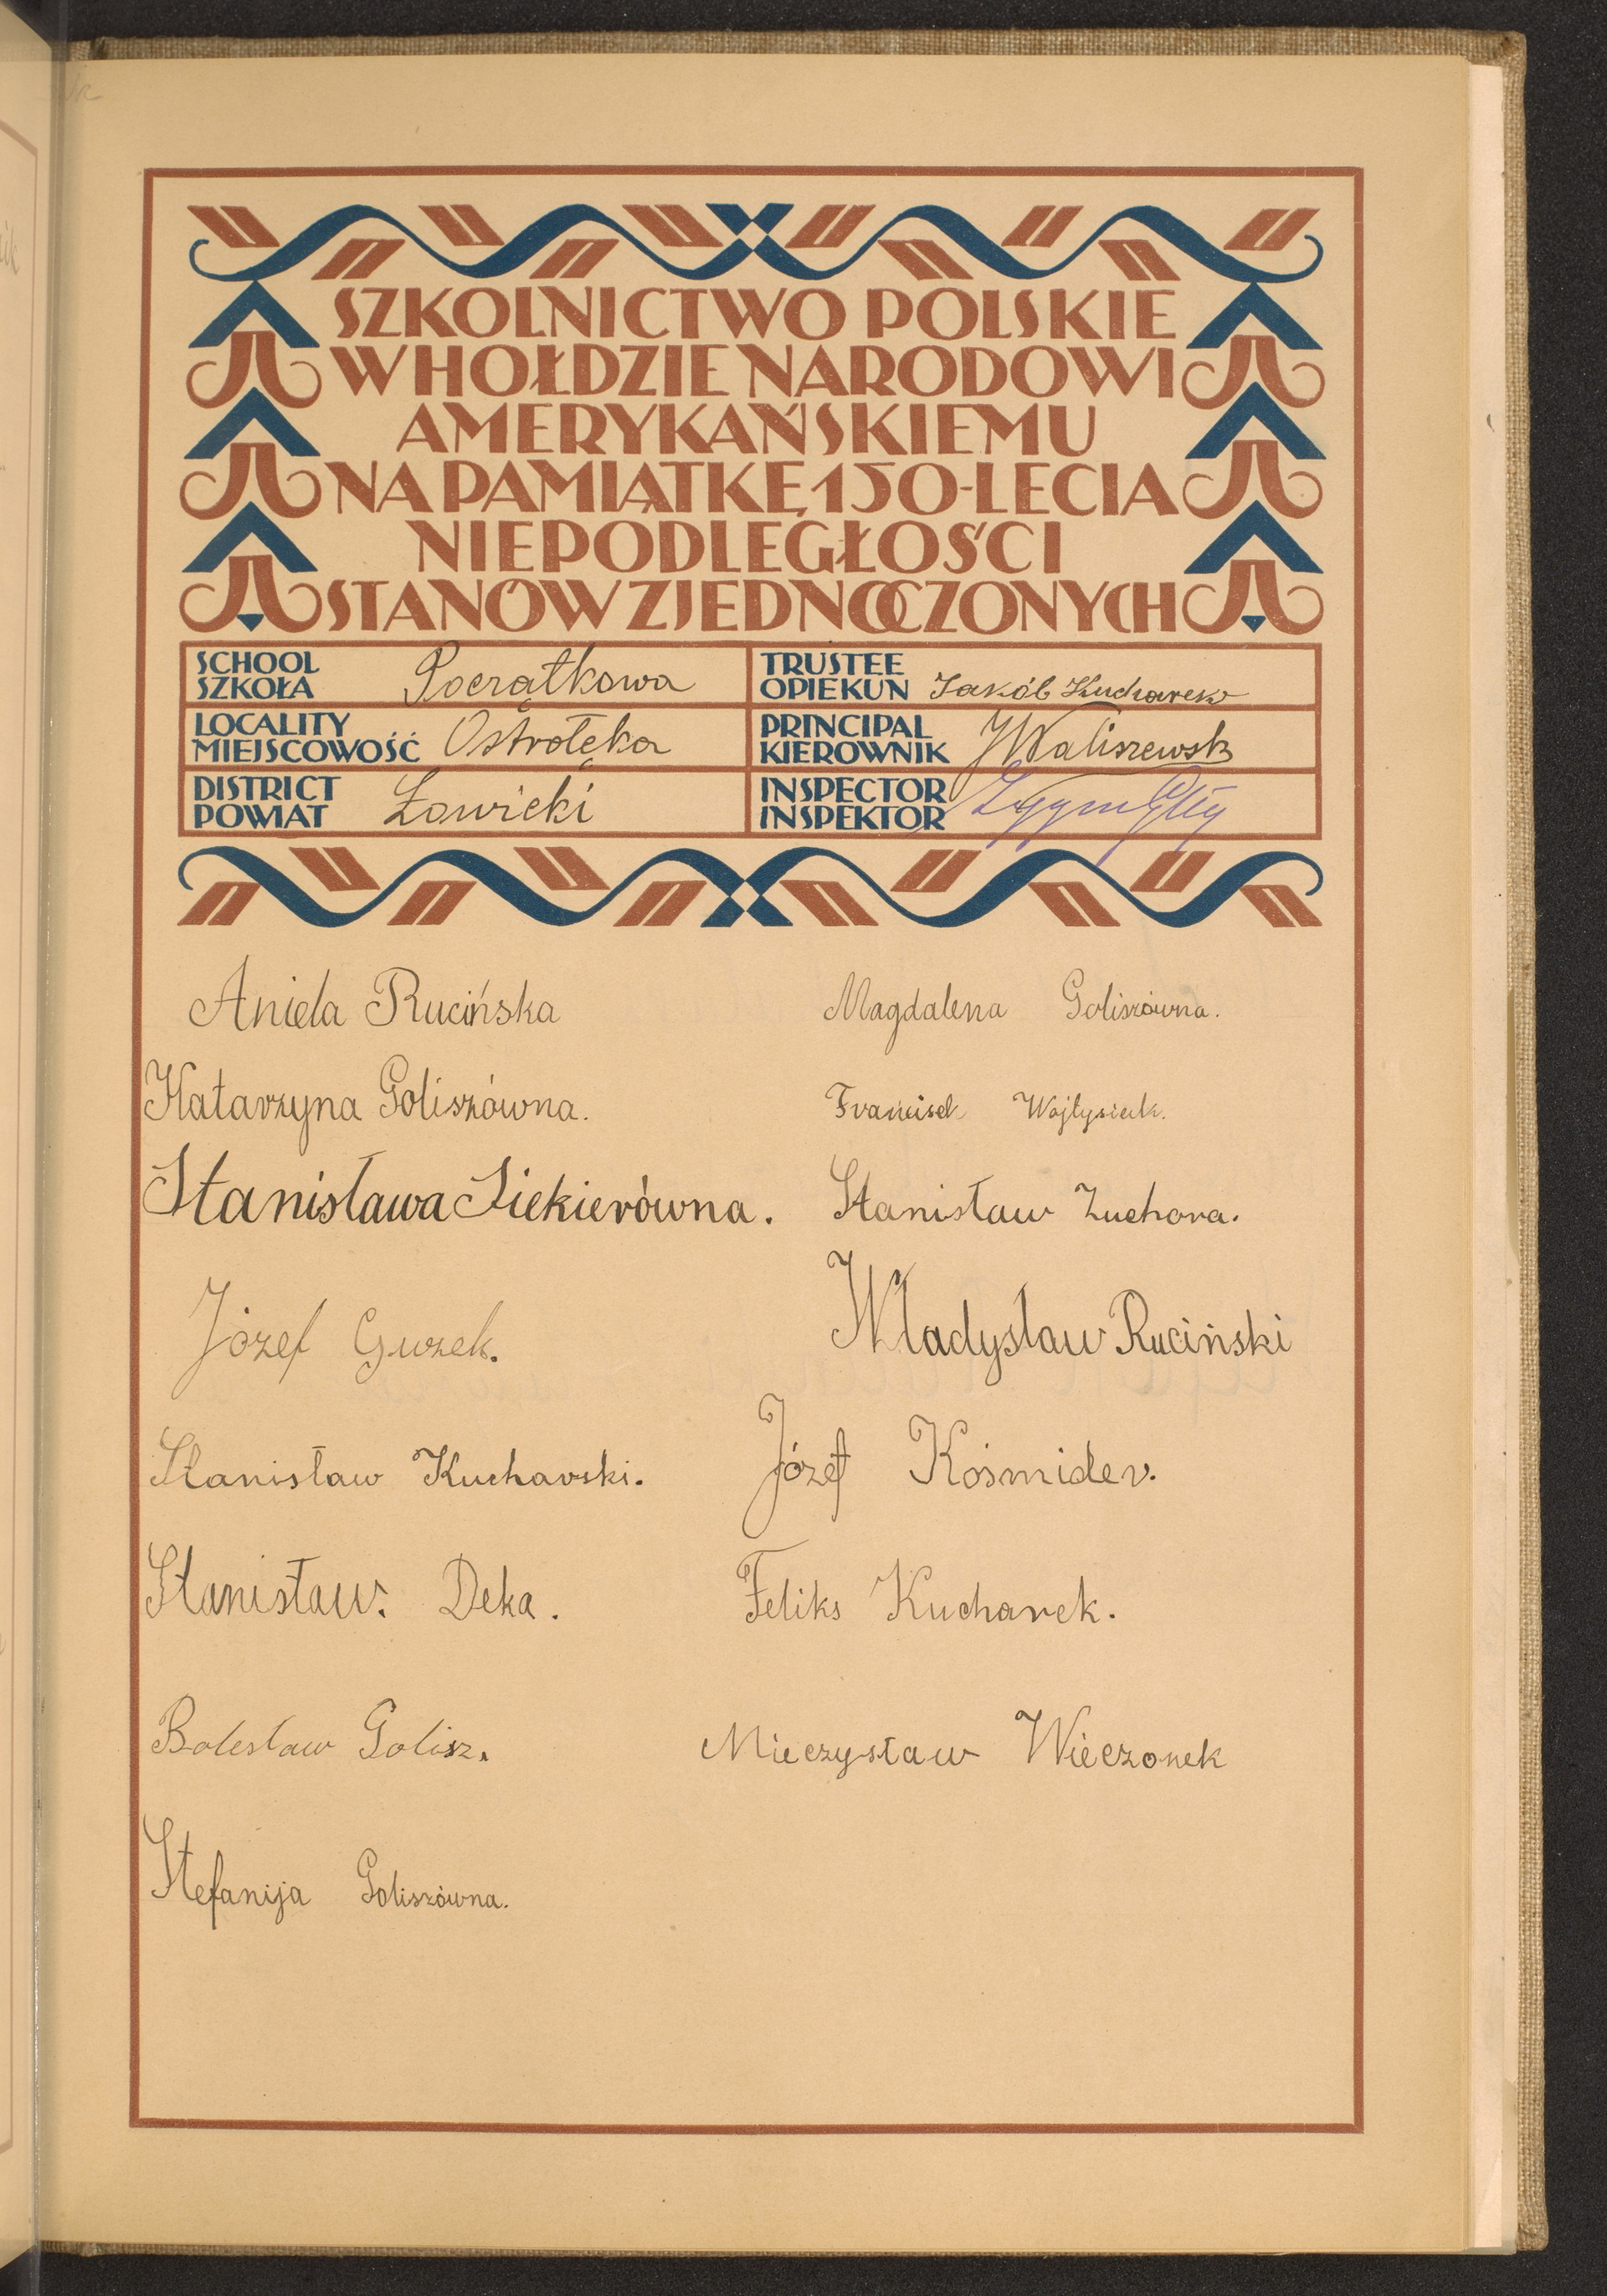 SZKOLNICTWO POLSKIE
W HOŁDZIE NARODOWI
AMERYKAŃSKIEMU
NA PAMIĄTKĘ 150-LECIA
NIEPODLEGŁOŚCI
STANÓW ZJEDNOCZONYCH
SCHOOL
SZKOŁA
Początkowa
TRUSTEE
OPIEKUN
Jakób Kucharek
LOCALITY
MIEJSCOWOŚĆ
Ostrołęka
PRINCIPAL
KIEROWNIK
JWaliszewski
DISTRICT
POWIAT
Łowicki
INSPECTOR
INSPEKTOR
Aniela Rucińska
Magdalena Goliszówna.
Katarzyna Goliszówna.
Franciszek Wojtysiak.
Stanisława Siekierówna.
Stanisław Zuchora.
Józef Guzek.
Władysław Ruciński
Stanisław Kucharski.
Józef Kośmider.
Stanisław. Deka.
Feliks Kucharek.
Bolesław Golisz.
Mieczysław Wieczorek
Stefanija Goliszówna.